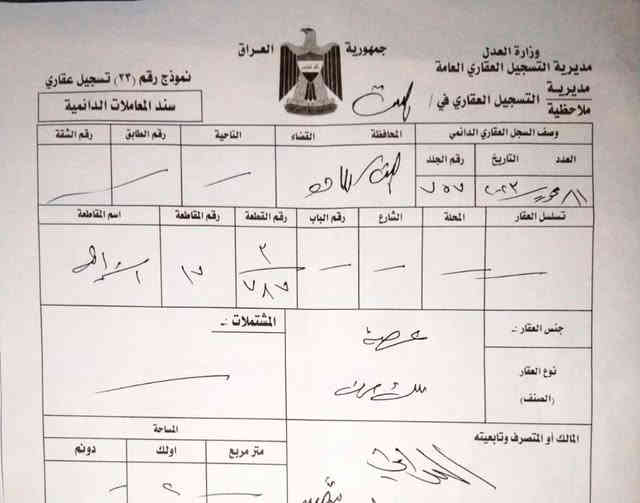 جمهورية العراق
وزارة العدل
مديرية التسجيل العقاري العامة
مديرية
ملاحظية التسجيل العقاري في / هيت
نموذج رقم (٢٣) تسجيل عقاري
سند المعاملات الدائمية
وصف السجل العقاري الدائمي المحافظة القضاء الناحية رقم الطابق رقم الشقة
العدد التاريخ رقم الجلد
٢٠٢٣ ٧٥٧
تسلسل العقار المحلة الشارع رقم الباب رقم القطعة رقم المقاطعة اسم المقاطعة
٣/٧٨٧ ١٧
جنس العقار :ـ عرصة المشتملات :ـ
نوع العقار
(الصنف) ملك صرف
المساحة
المالك أو المتصرف وتابعيته متر مربع اولك دونم